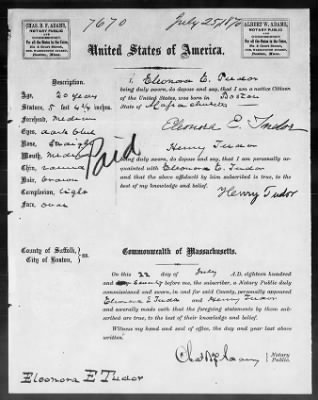 CHAS. B. F. ADAMS,
NOTARY PUBLIC
For all the States in the Union,
7670
July 25/70
ALBERT W. ADAMS,
NOTARY PUBLIC
For all the States in the Union,
United States of America.
Description.
Age, 20 years
Stature, 5 feet 4½ inches
Forehead, medium
Eyes, dark blue
Nose, straight
Mouth, medium
Chin, round
Hair, brown
Complexion, light
Face, oval
Paid
I, Eleonora E. Tudor
being duly sworn, do depose and say, that I am a native Citizen
of the United States, was born in Boston
State of Massachusetts
Eleonora E. Tudor
Henry Tudor
being duly sworn, do depose and say, that I am personally ac-
quainted with Eleonora E. Tudor
and that the above affidavit by him subscribed is true, to the
best of my knowledge and belief.
Henry Tudor
County of Suffolk,
City of Boston, } ss.
Commonwealth of Massachusetts.
On this 22 day of July A.D. eighteen hundred
and seventy before me, the subscriber, a Notary Public duly
commissioned and sworn, in and for said County, personally appeared
Eleonora E Tudor and Henry Tudor
and severally made oath that the foregoing statements by them sub-
scribed are true, to the best of their knowledge and belief.
Witness my hand and seal of office, the day and year last above
written.
Notary
Public.
Eleonora E Tudor